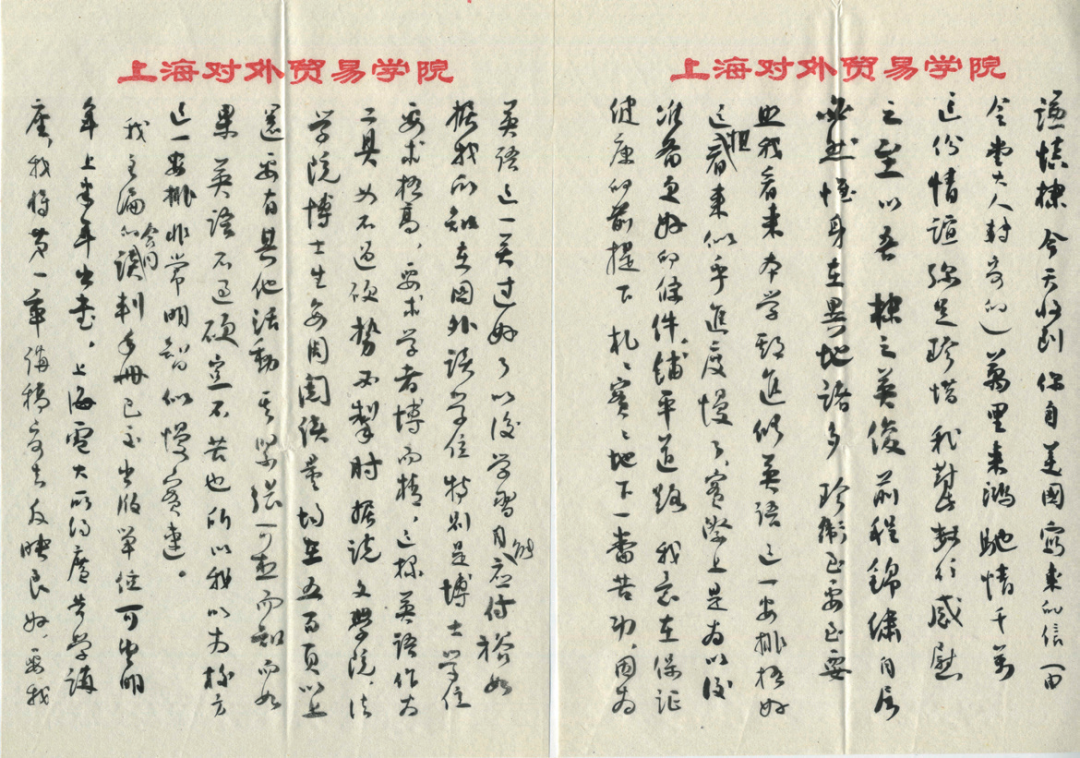 上海对外贸易学院
谦慎棣 今天收到你自美国寄来的信（由
令堂大人转交的）万里来鸿 驰情千万
这份情谊弥足珍惜 我
之至 以吾 棣之英俊 前程锦绣自属
必然 惟身在异地诸多 珍卫至要至要
照我看来本学期进修英语这一安排极好
这看来似乎进度慢了 实际上是为以后
准备更好的条件、铺平道路 我意在保证
健康的前提下扎扎实实地下一番苦功、因为
上海对外贸易学院
英语这一关过好了以后学习自能应付裕如
据我所知在国外读学位特别是博士学位
要求极高，要求学者博而精，这样英语作为
工具如不过硬势必掣肘 据说文学院、法
学院博士生每周阅读量均在五百页以上
还要有其他活动 其紧张可想而知 而如
果英语不过硬岂不苦也 所以我以为校方
这一安排非常明智似慢实速。
我主编的合同谈判手册已交出版单位可望明
年上半年出书。上海电大所约广告学讲
座，我将第一章讲稿交去反映良好，要我